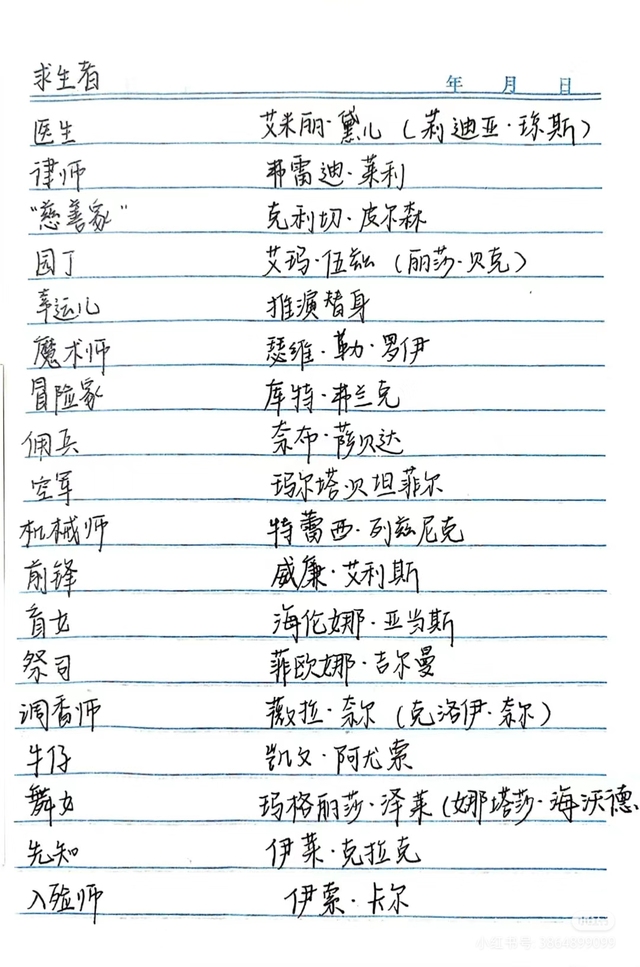 求生者 年 月 日
医生 艾米丽·黛儿（莉迪亚·琼斯）
律师 弗雷迪·莱利
“慈善家” 克利切·皮尔森
园丁 艾玛·伍兹（丽莎·贝克）
幸运儿 推演替身
魔术师 瑟维·勒·罗伊
冒险家 库特·弗兰克
佣兵 奈布·萨贝达
空军 玛尔塔贝坦菲尔
机械师 特蕾西·列兹尼克
前锋 威廉·艾利斯
盲女 海伦娜·亚当斯
祭司 菲欧娜·吉尔曼
调香师 薇拉·奈尔（克洛伊·奈尔）
牛仔 凯文·阿尤索
舞女 玛格丽莎·泽莱（娜塔莎·海沃德
先知 伊莱·克拉克
入殓师 伊索·卡尔
小红书号